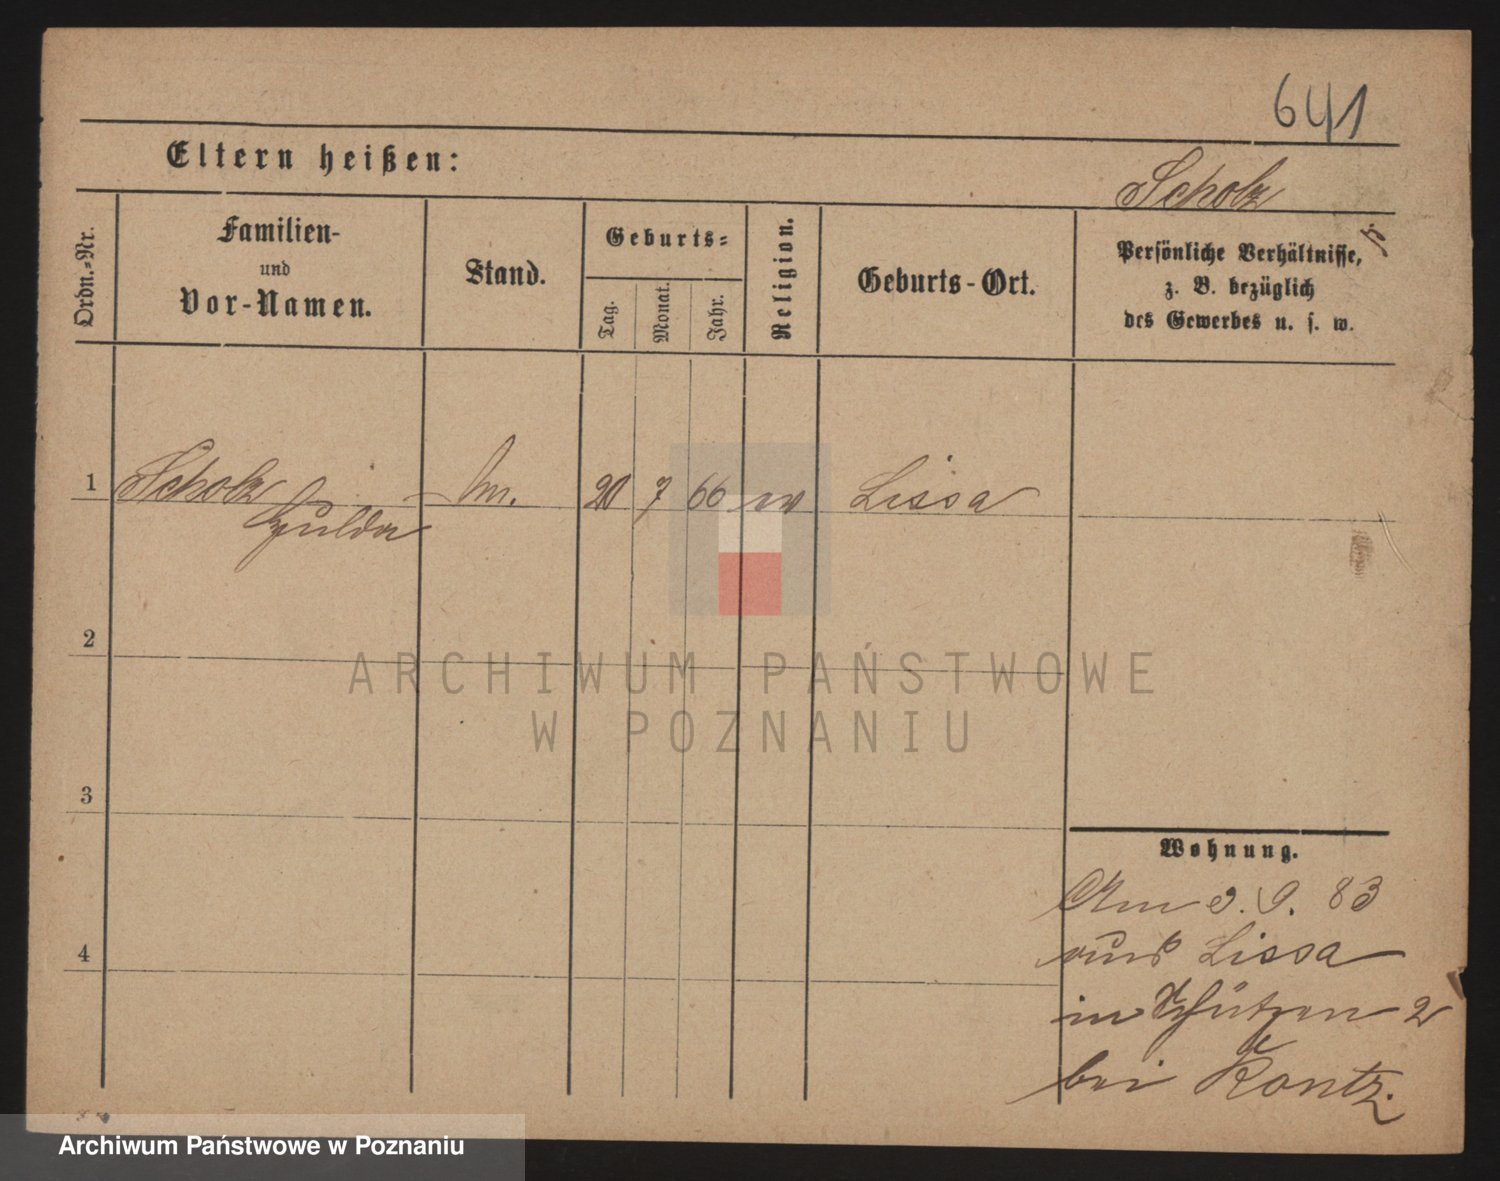 641
Eltern heißen:
Scholz
Ordn.-Nr.
Familien-
und
Vor-Namen.
Stand.
Geburts-
Tag.
Monat.
Jahr.
Religion.
Geburts-Ort.
Persönliche Verhältnisse,
z. B. bezüglich
des Gewerbes u. s. w.
1 Scholz 20 7 66 Lissa
Hulda
2
3
4
Wohnung.
Am 3. 9. 83
aus Lissa
in Schützen 2
bei Kontz.
ARCHIWUM PAŃSTWOWE
W POZNANIU
Archiwum Państwowe w Poznaniu